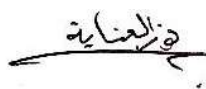 فوز العناية